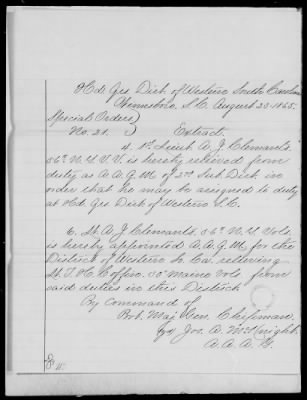 Hd. Qrs Dist. of Western South Carolina
Winnsboro, S.C. August 23 1865.
Special Orders
No. 21. Extract
4. 1st Lieut A J Clements
56th N.Y.V.V. is hereby relieved from
duty as A A Q M of 2nd Sub Dist in
order that he may be assigned to duty
at Hd Qrs Dist of Western S.C.
6. Lt A J Clements, 56th N.Y. Vols
is hereby appointed A A Q M for the
District of Western So Ca, relieving
Lt Coffin, 30th Maine Vols from
said duties in this District
By command of
Bvt. Maj Gen. Chipman
Jos. A. McKnight.
A.A.A.G.